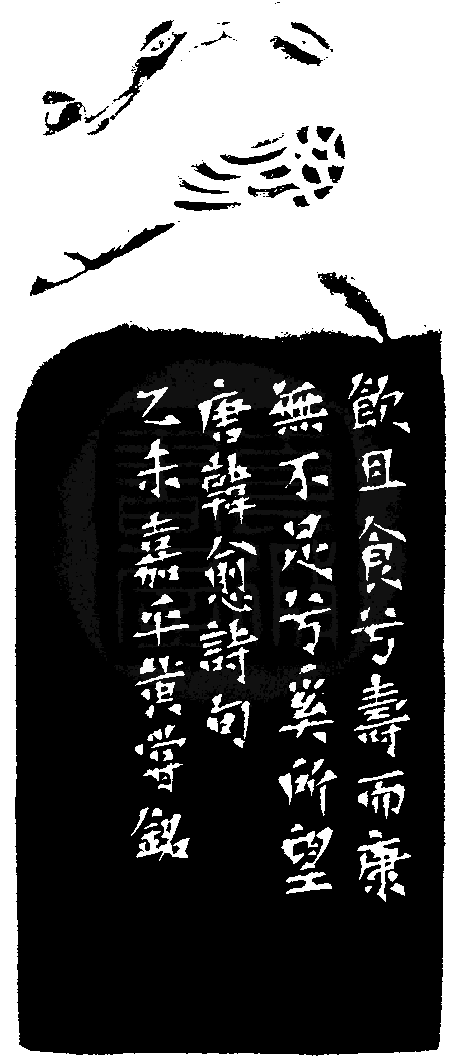 飲且食兮壽而康
無不足兮奚所望
唐韓愈詩句
乙未嘉平黃嘗銘